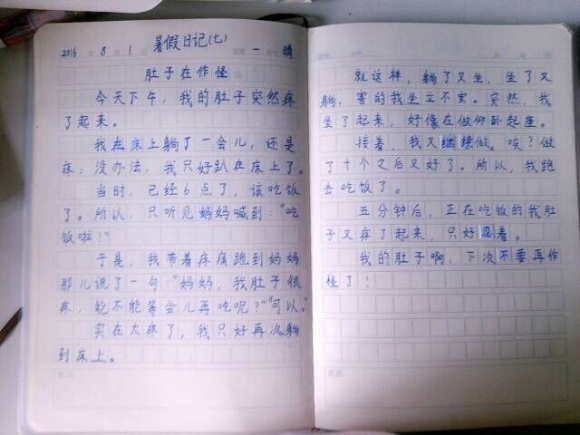 暑假日记(七)
2016 8 1 一 晴
肚子在作怪
今天下午，我的肚子突然疼
了起来。
我在床上躺了一会儿，还是
疼，没办法，我只好趴在床上了。
当时，已经6点了，该吃饭
了。所以，只听见妈妈喊到：“吃
饭啦！”
于是，我带着疼痛跑到妈妈
那儿说了一句：“妈妈，我肚子很
疼，能不能等会儿再吃呢？”“可以。”
实在太疼了，我只好再次躺
到床上。
就这样，躺了又坐，坐了又
躺，害的我坐立不安。突然，我
坐了起来，好像在做仰卧起座。
接着，我又继续做。唉？做
了十个之后又好了。所以，我跑
去吃饭了。
五分钟后，正在吃饭的我肚
子又疼了起来，只好忍着。
我的肚子啊，下次不要再作
怪了！